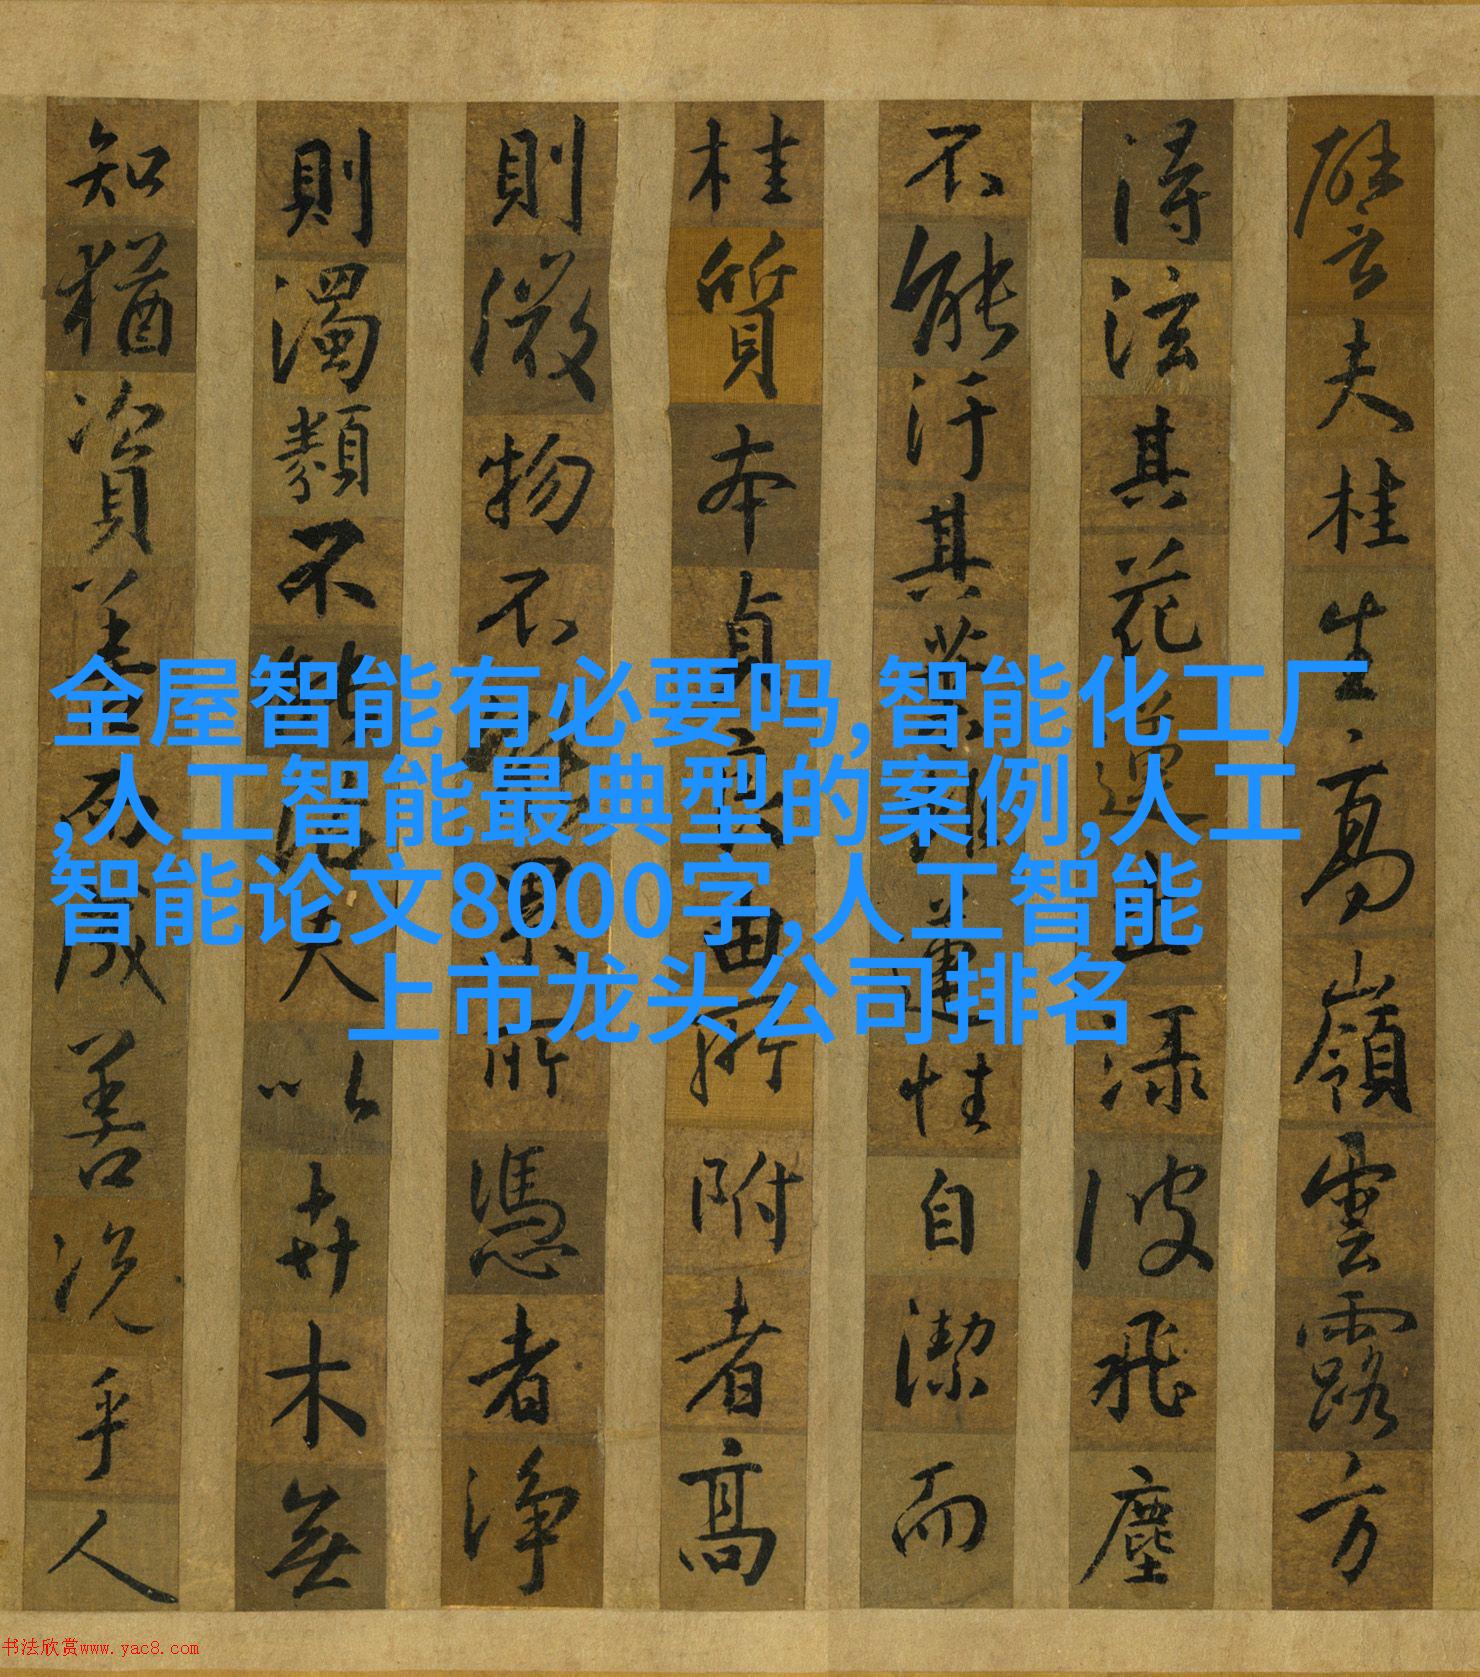 譬夫桂生高嶺雲露方
得泫其花蓮出淥波飛塵
不能汙其葉非蓮性自潔而
桂質本貞良由所附者高
則微物不能累所憑者淨
則濁類不能沾夫以卉木無
知猶資善而成善況乎人
全屋智能有必要吗,智能化工厂
,人工智能最典型的案例,人工
智能论文8000字,人工智能
上市龙头公司排名
书法欣赏www.yac8.com